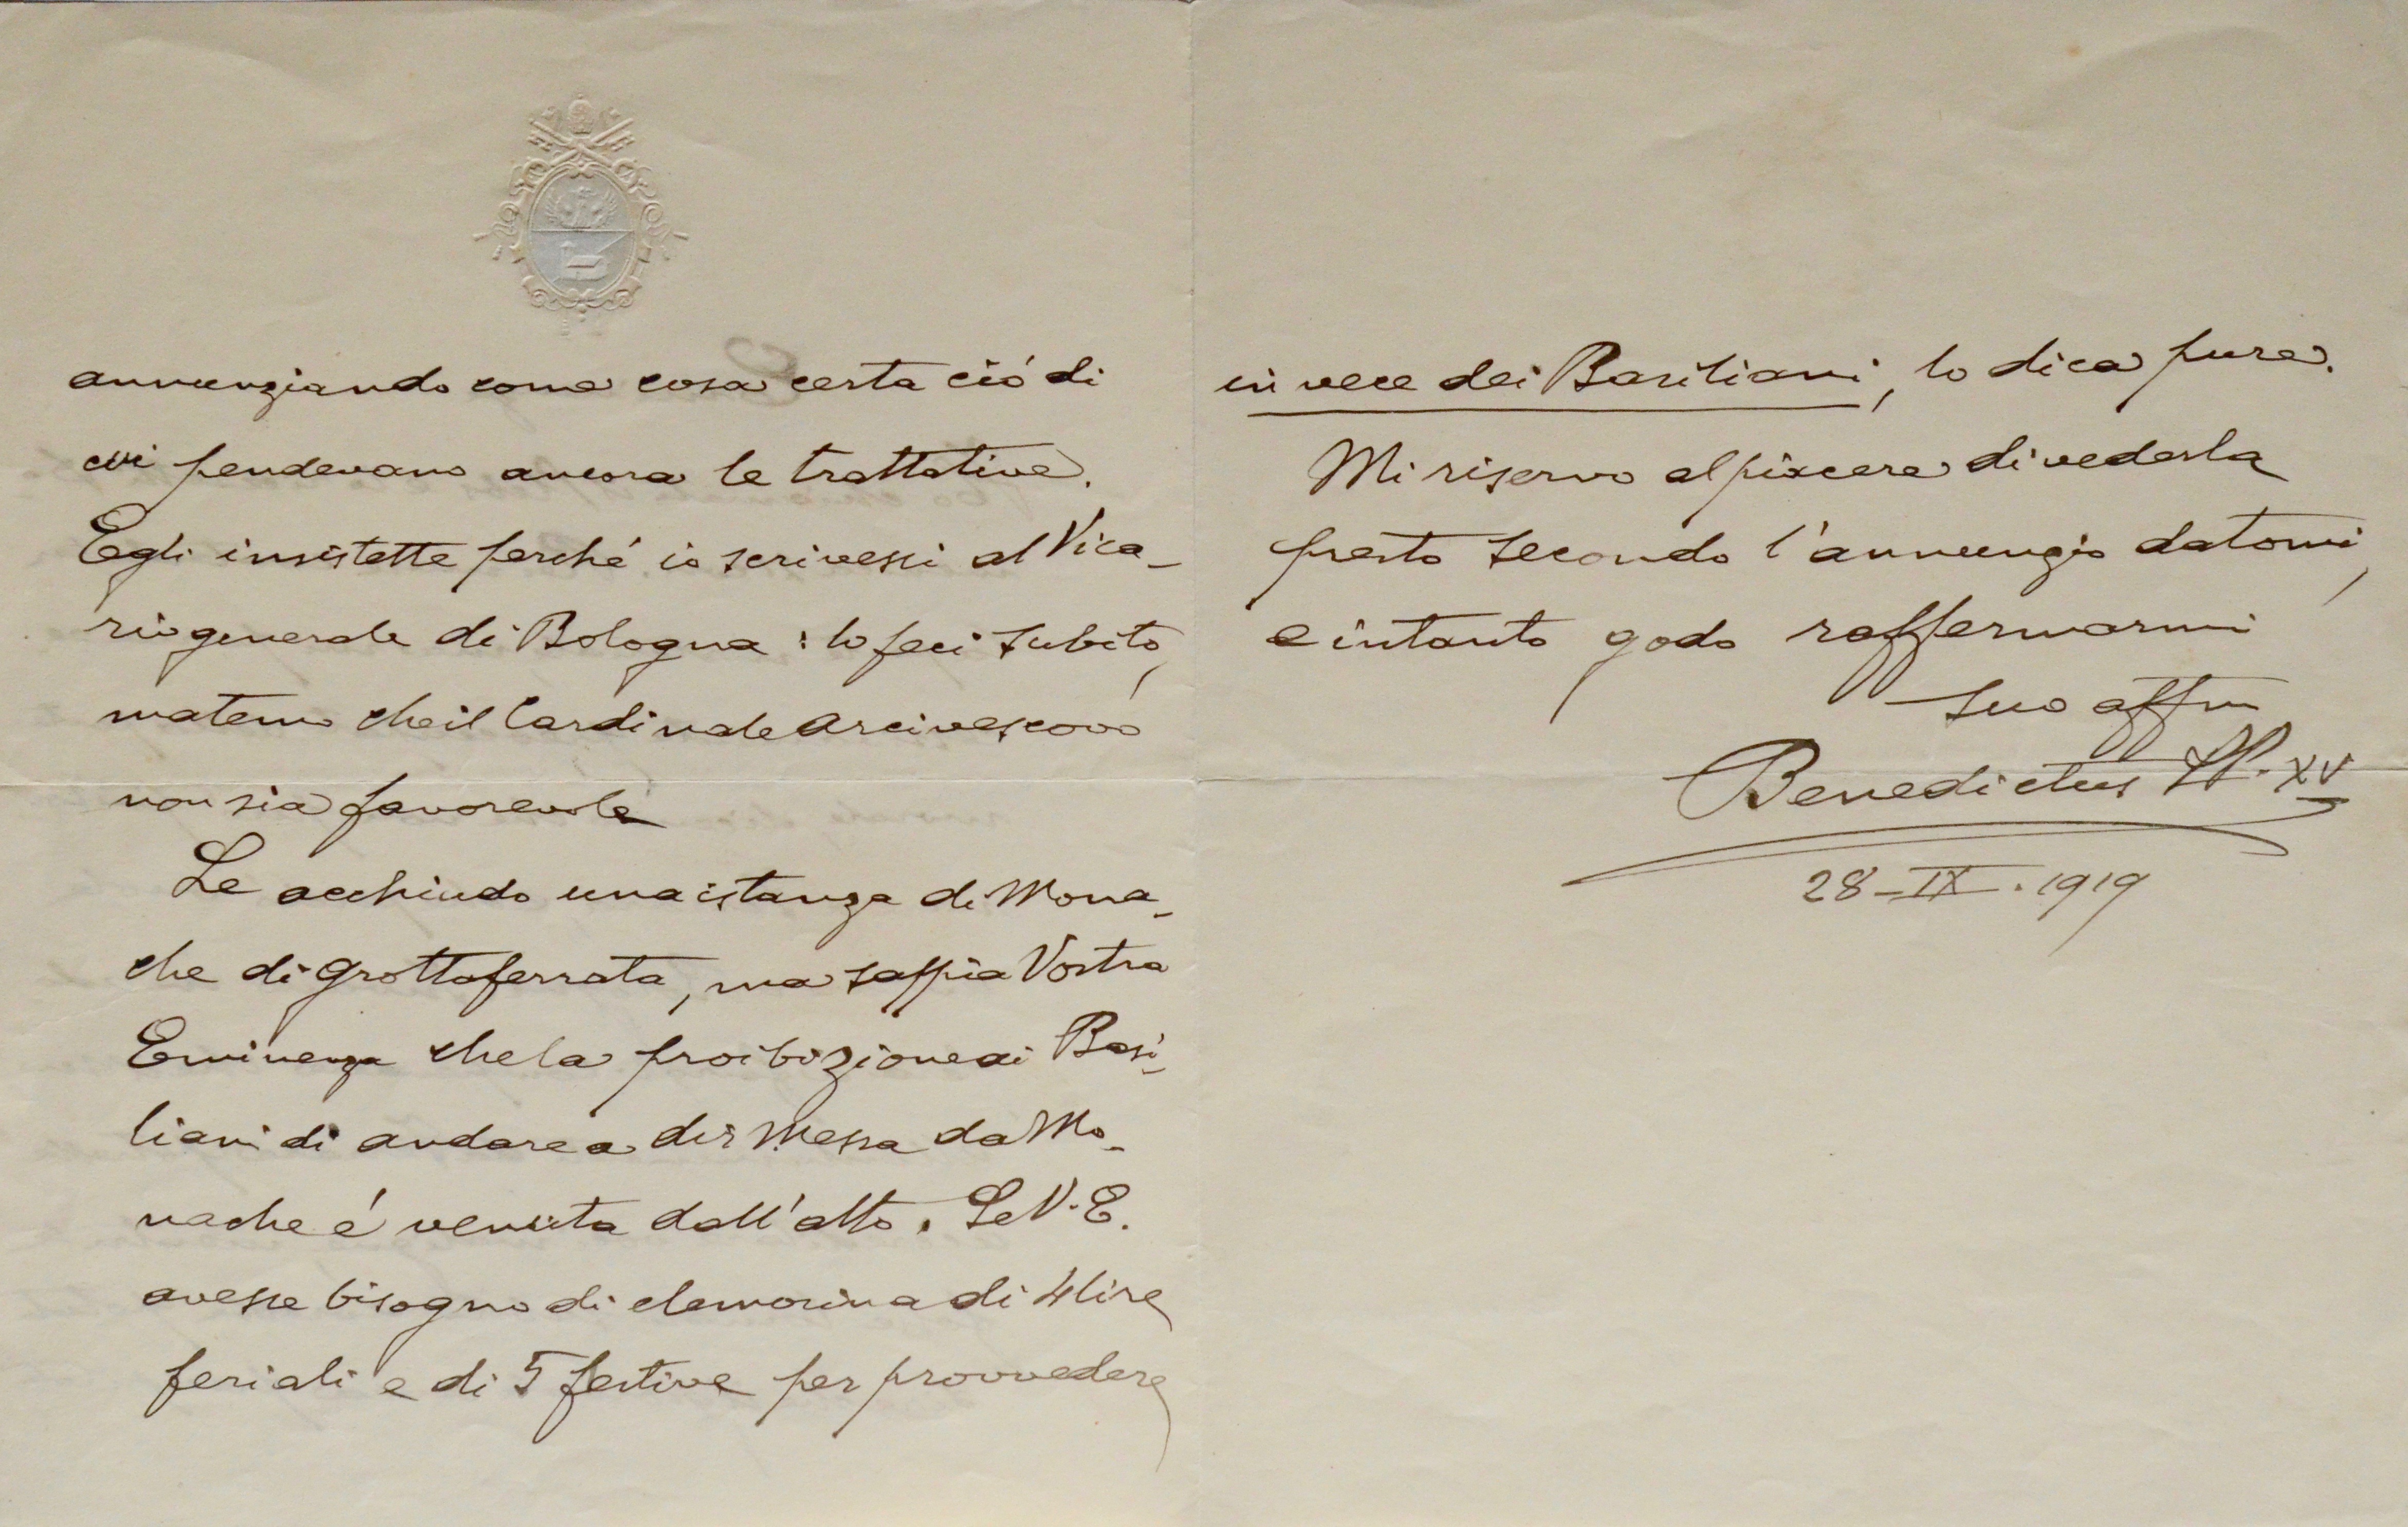 annunziando come cosa certa ció di
cui pendevano ancora le trattative.
Egli insistette perché io scrivessi al Vica-
rio generale di Bologna : lo feci subito,
ma temo che il Cardinale Arcivescovo
non sia favorevole
Le acchiudo una istanza di Mona-
che di Grottaferrata, ma sappia Vostra
Eminenza che la proibizione ai Basi-
liani di andare a dir Messa da Mo-
nache é venuta dall'alto. Se V. E.
avesse bisogno di elemosina di 4 lire
feriali e di 5 festive per provvedere
in vece dei Basiliani, lo dica pure.
Mi riservo al piacere di vederla
presto secondo l'annunzio datomi,
e intanto godo raffermarmi
suo affm
Benedictus PP. XV
28-IX.1919